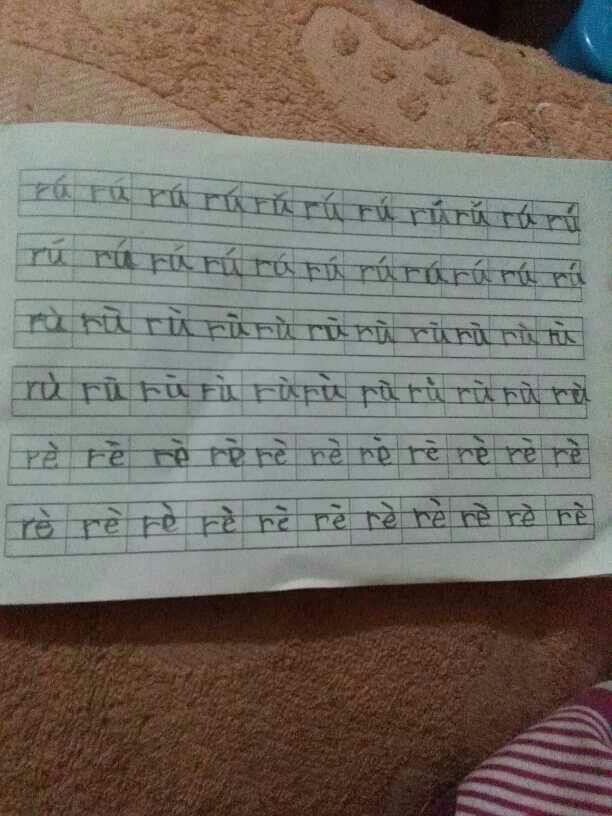 rú rú rú rú rú rú rú rú rú rú rú
rú rú rú rú rú rú rú rú rú rú rú
rù rù rù rù rù rù rù rù rù rù rù
rù rù rù rù rù rù rù rù rù rù rù
rè rè rè rè rè rè rè rè rè rè rè
rè rè rè rè rè rè rè rè rè rè rè